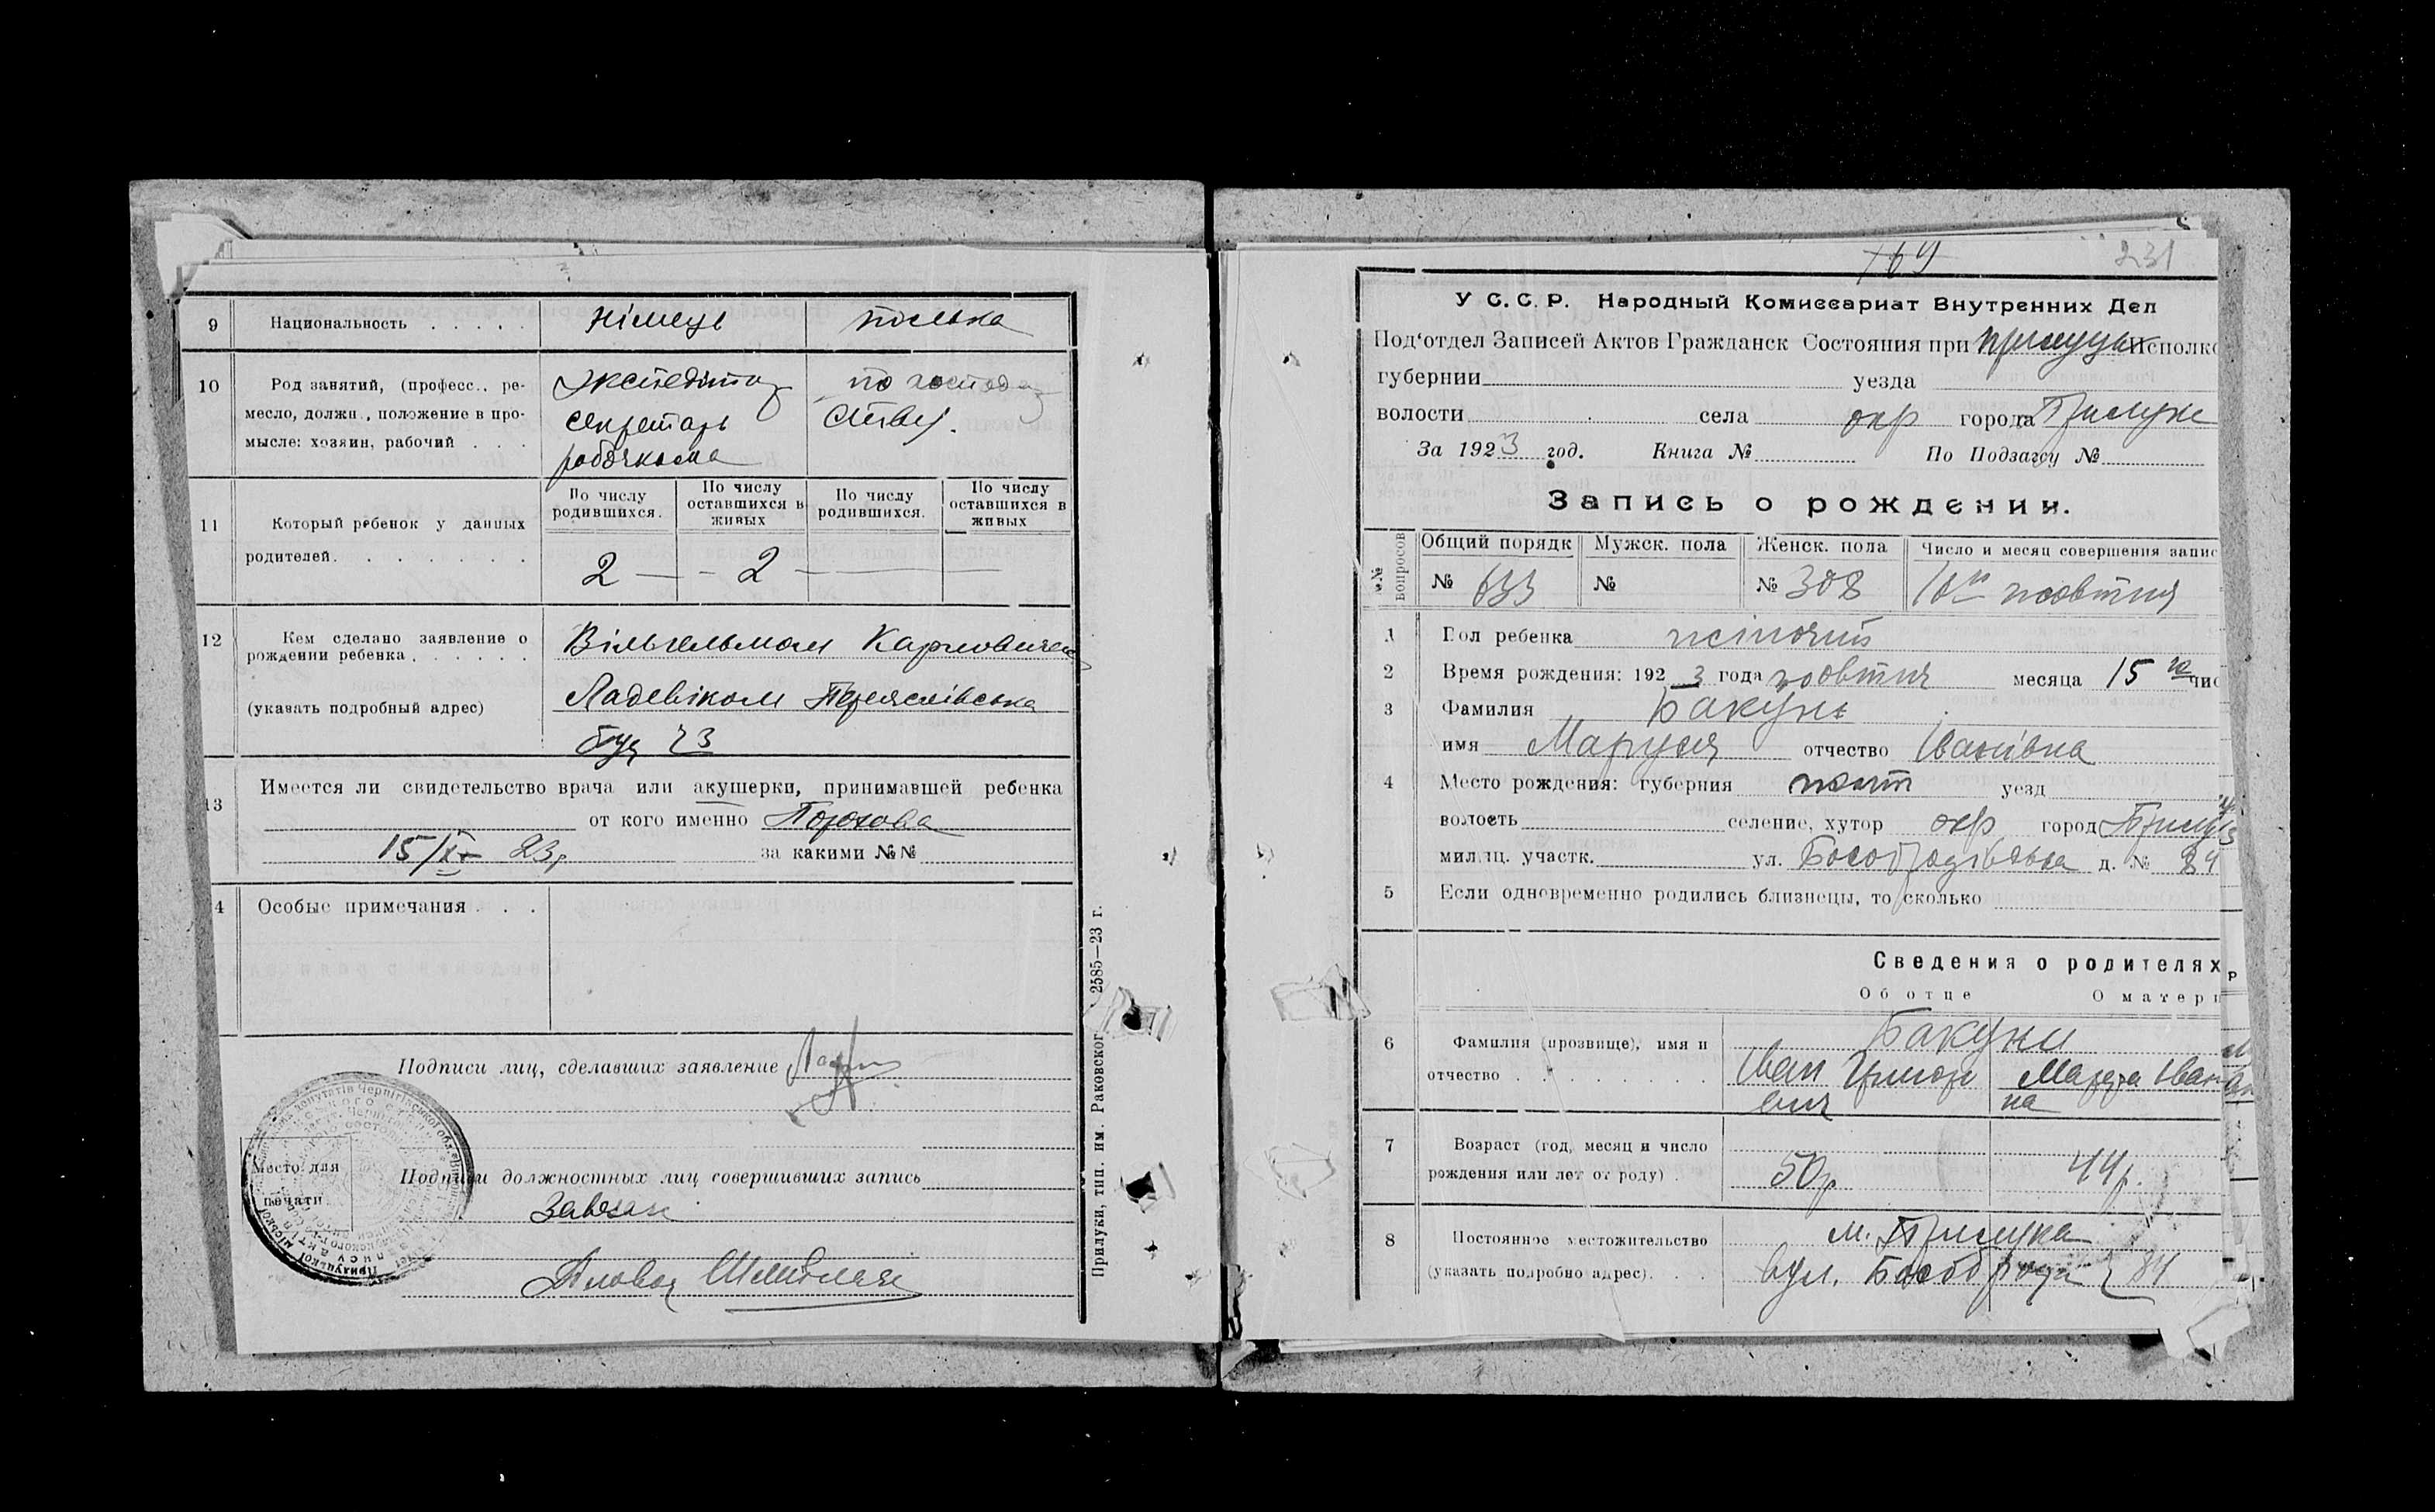 9 Национальность . . . . . німець полька
10 Род занятий, (професс., ре-
месло, должн., положение в про-
мысле: хозяин, рабочий . . .
секретарь
робочкома
по господа
рству.
11 Который ребенок у данных
родителей. . . . . . .
По числу родившихся. По числу оставшихся в живых По числу родившихся. По числу оставшихся в живых
2 — - 2 —
12 Кем сделано заявление о
рождении ребенка . . . . . .
(указать подробный адрес)
Вільгельмом Карловичем
Ладевіком Переяслівська
буд 23
13 Имеется ли свидетельство врача или акушерки, принимавшей ребенка
от кого именно Порохова
15/IX 23р за какими №№
4 Особые примечания . . .
Подписи лиц, сделавших заявление
Место для
печати
Подписи должностных лиц совершивших запись
Завзагс
Прилуки, тип. им. Раковског 2585—23 г.
769 231
У С. С. Р. Народный Комиссариат Внутренних Дел
Под'отдел Записей Актов Гражданск Состояния при Прилуцьк Исполко
губернии уезда
волости села окр города Прилуки
За 1923 год. Книга № По Подзагсу №
Запись о рождении.
№№ вопросов
Общий порядк Мужск. пола Женск. пола Число и месяц совершения запис
№ 633 № № 308 18го жовтня
1 Пол ребенка жіночий
2 Время рождения: 1923 года жовтня месяца 15го чис
3 Фамилия Бакун
имя Маруся отчество Іванівна
4 Место рождения: губерния полт уезд
волость селение, хутор окр город Прилука
милиц. участк. ул. Бособродівська д. № 84
5 Если одновременно родились близнецы, то сколько
Сведения о родителях
Об отце О матери
6 Фамилия (прозвище), имя и
отчество . . . . . . . . .
Бакуни
Іван Григор
ович
Марфа Іванів
на
7 Возраст (год, месяц и число
рождения или лет от роду) .
50р 44р.
8 Постоянное местожительство
(указать подробно адрес). . .
м. Прилука
вул. Бособрода 84